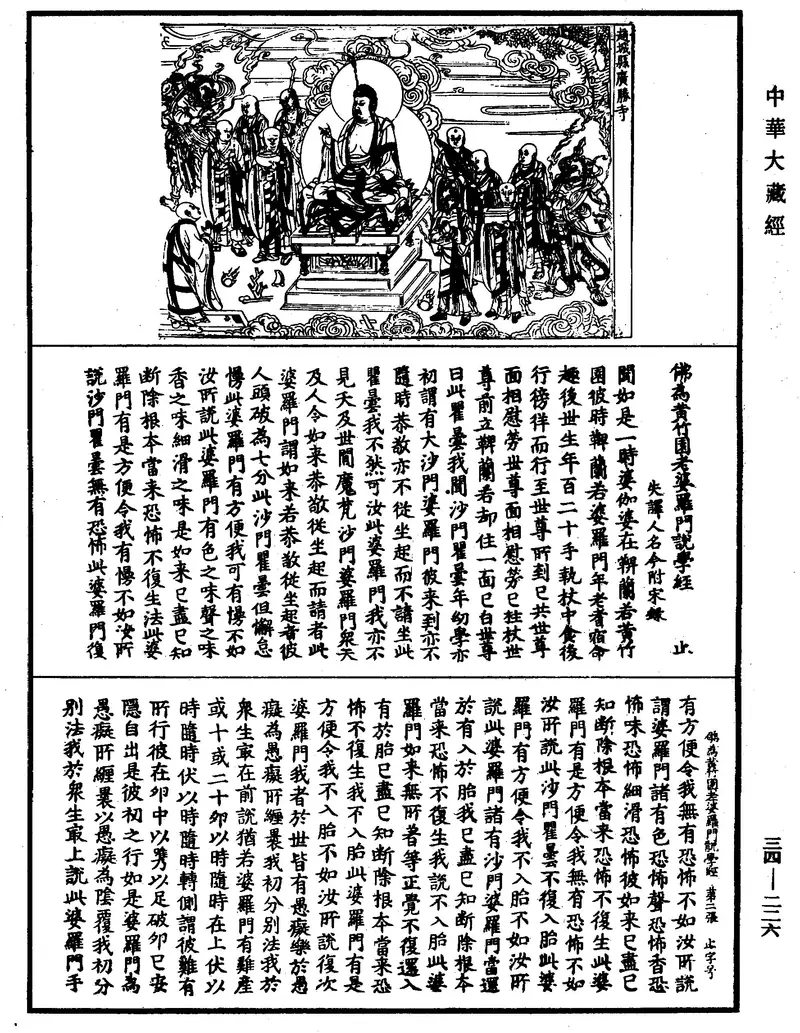 中華大藏經
趙城縣廣勝寺
佛為黃竹園老婆羅門說學經　止
失譯人名今附宋錄
聞如是一時婆伽婆在鞞蘭若黃竹
園彼時鞞蘭若婆羅門年老耆宿命
趣後世生年百二十手執杖中食後
行徬徉而行至世尊所到已共世尊
面相慰勞世尊面相慰勞已拄杖世
尊前立鞞蘭若却住一面已白世尊
曰此瞿曇我聞沙門瞿曇年幼學亦
初謂有大沙門婆羅門彼來到亦不
隨時恭敬亦不從坐起而不請坐此
瞿曇我不然可汝此婆羅門我亦不
見天及世間魔梵沙門婆羅門眾天
及人令如來恭敬從坐起而請者此
婆羅門謂如來若恭敬從坐起者彼
人頭破為七分此沙門瞿曇但懈怠
慢此婆羅門有方便我可有慢不如
汝所說此婆羅門有色之味聲之味
香之味細滑之味是如來已盡已知
斷除根本當來恐怖不復生法此婆
羅門有是方便令我有慢不如汝所
說沙門瞿曇無有恐怖此婆羅門復
佛為黃竹園老婆羅門說學經　第二張　止字号
有方便令我無有恐怖不如汝所說
謂婆羅門諸有色恐怖聲恐怖香恐
怖味恐怖細滑恐怖彼如來已盡已
知斷除根本當來恐怖不復生此婆
羅門有是方便令我無有恐怖不如
汝所說此沙門瞿曇不復入胎此婆
羅門有方便令我不入胎不如汝所
說此婆羅門諸有沙門婆羅門當還
於有入於胎我已盡已知斷除根本
當來恐怖不復生我說不入胎此婆
羅門如來無所著等正覺不復還入
有於胎已盡已知斷除根本當來恐
怖不復生我不入胎此婆羅門有是
方便令我不入胎不如汝所說復次
婆羅門我者於世皆有愚癡樂於愚
癡為愚癡所纏裹我初分別法我於
眾生最在前說猶若婆羅門有雞產
或十或二十卵以時隨時在上伏以
時隨時伏以時隨時轉側謂彼雞有
所行彼在卵中以嘴以足破卵已安
隱自出是彼初之行如是婆羅門為
愚癡所纏裹以愚癡為陰覆我初分
別法我於眾生最上說此婆羅門手
三四—二二六